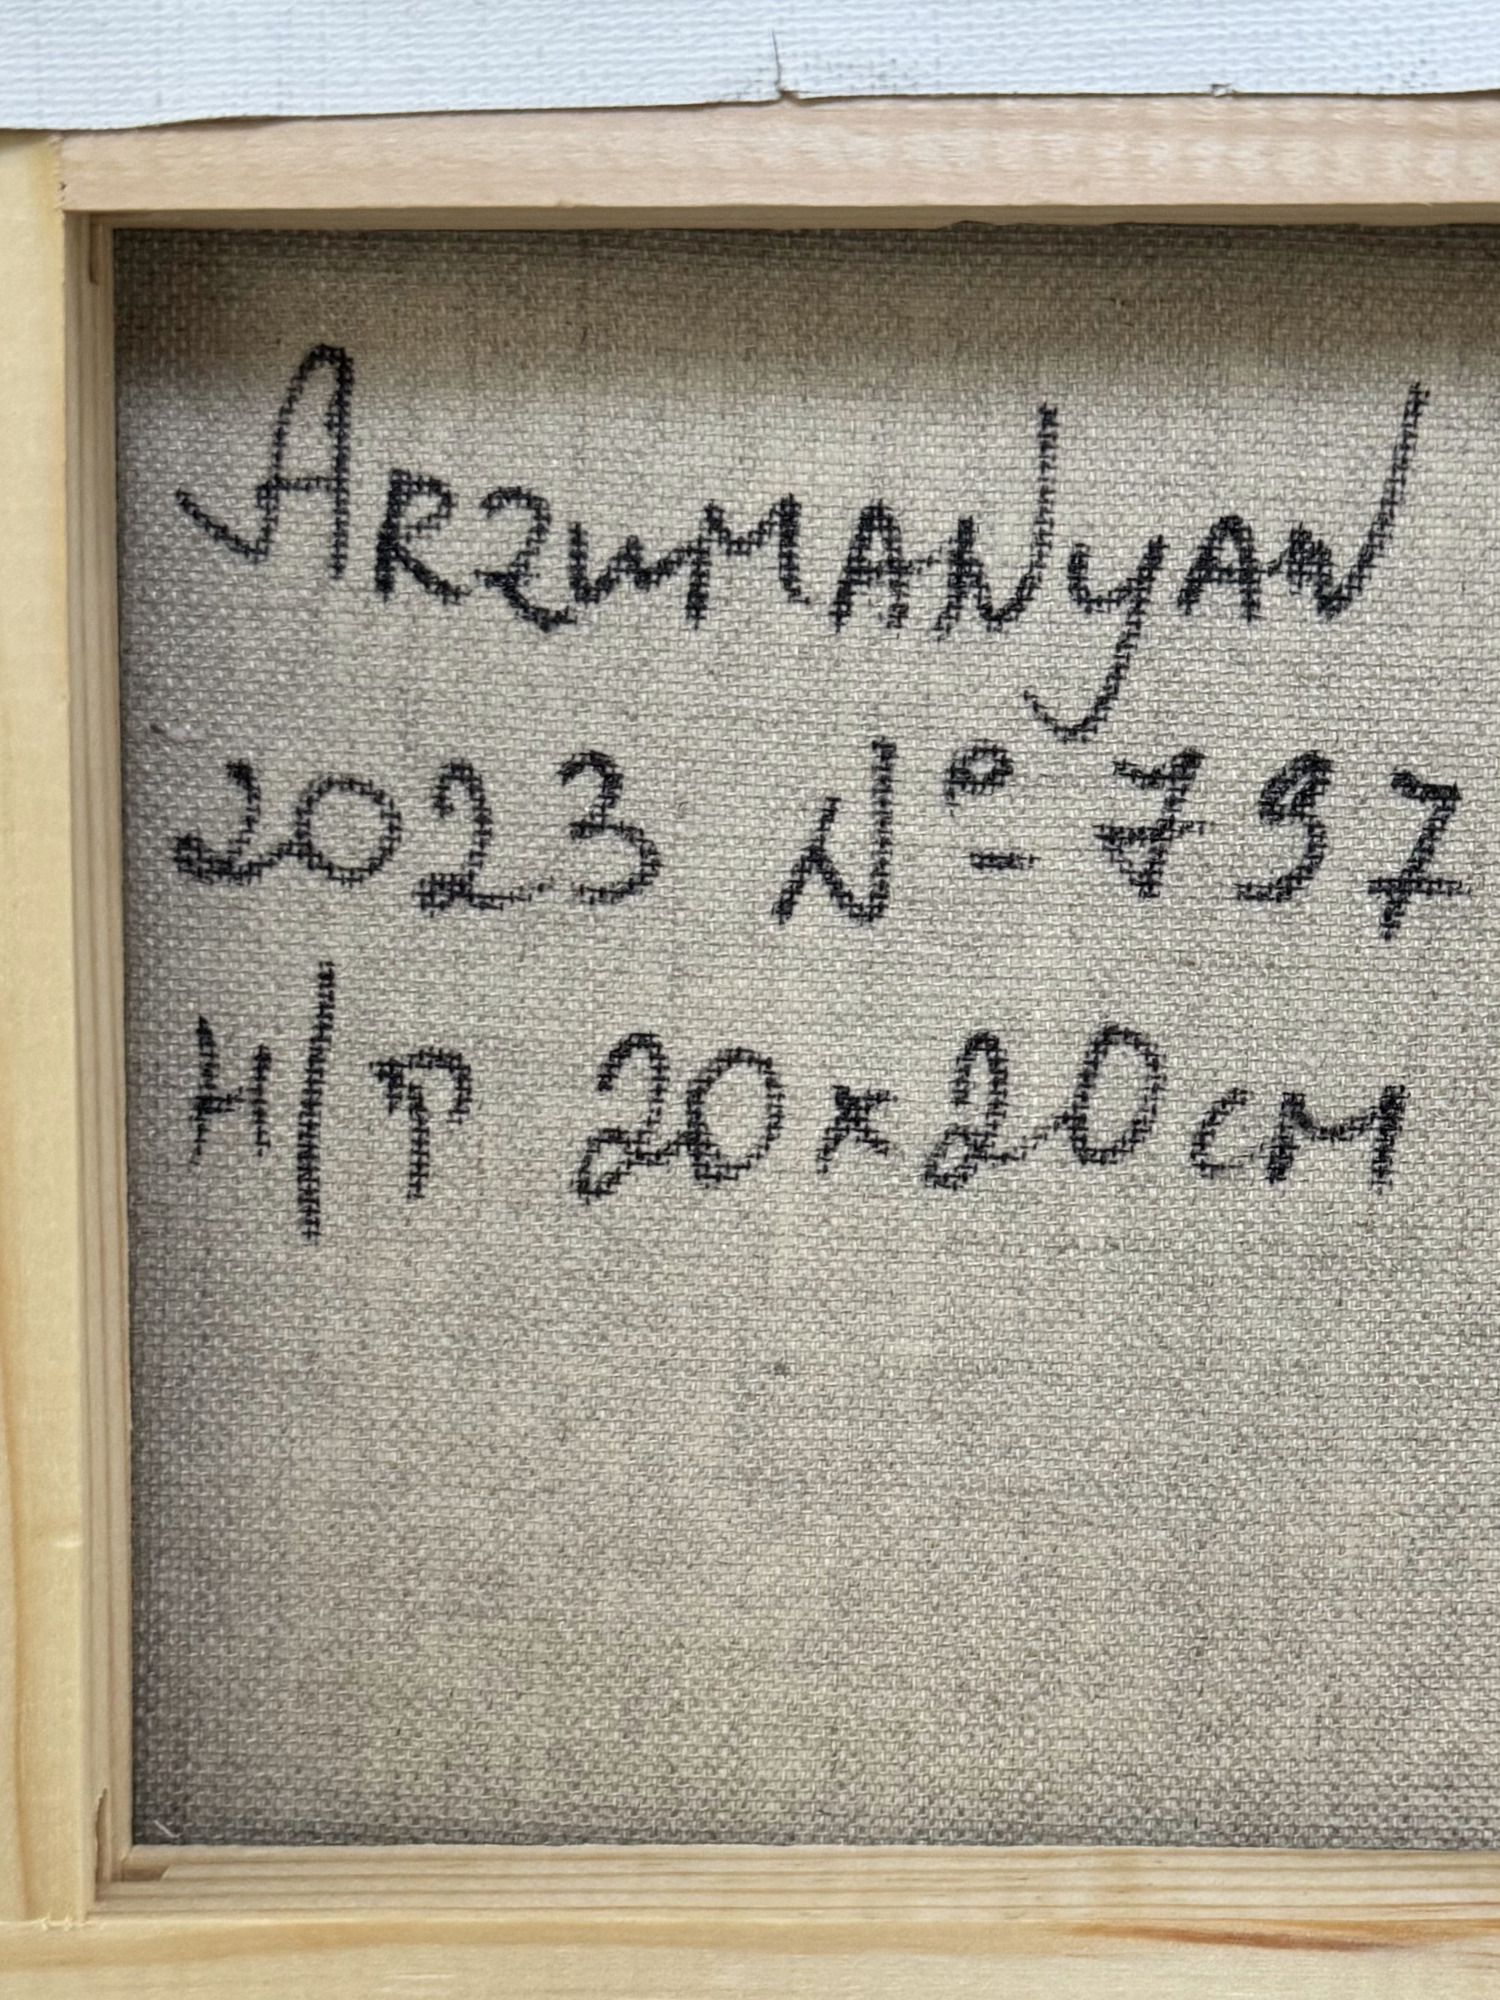 ARZUMANyAN
2023 Nº 797
H/P 20x20cм